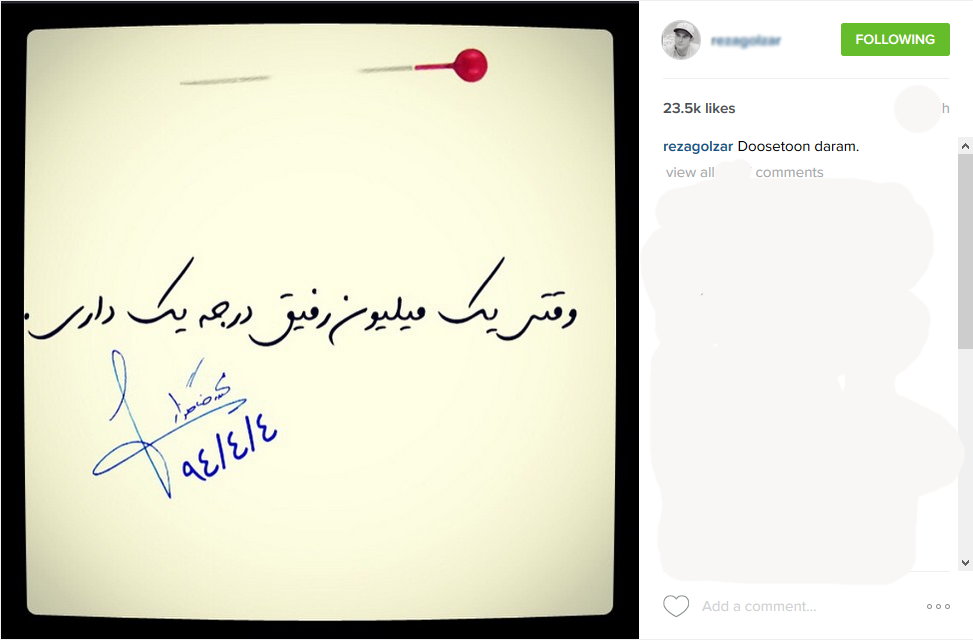 وقتی یک میلیون رفیق درجه یک داری.
محمدرضا گلزار
۹٤/٤/٤
rezagolzar
FOLLOWING
23.5k likes
h
rezagolzar Doosetoon daram.
view all comments
Add a comment...